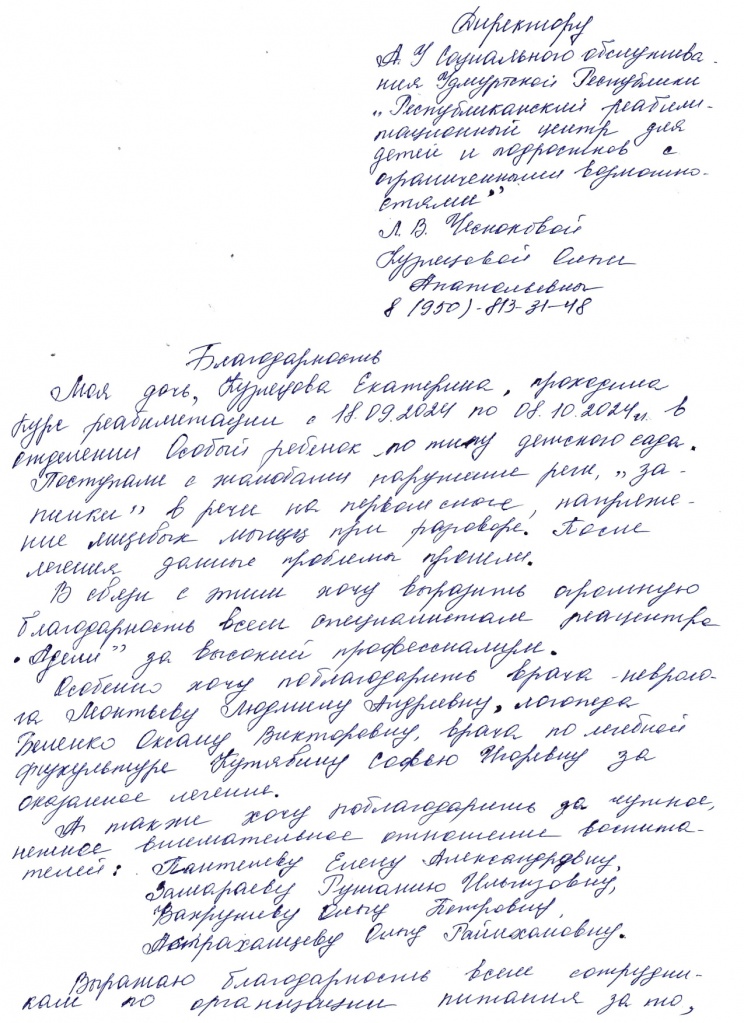 Директору
А.У Социального обслужива-
ния Удмуртской Республики
„Республиканский реабили-
тационный центр для
детей и подростков с
ограниченными возможно-
стями"
Л.В. Чесноковой
Кузнецовой Елены
Анатольевны
8 (950)-813-31-48
Благодарность
Моя дочь, Кузнецова Екатерина, проходила
курс реабилитации с 18.09.2024 по 08.10.2024г. в
отделении Особый ребенок по типу детского сада.
Поступали с жалобами нарушение речи, „за-
пинки" в речи на первом слоге, напряже-
ние лицевых мышц при разговоре. После
лечения данные проблемы прошли.
В связи с этим хочу выразить огромную
благодарность всем специалистам реацентра
„Адели" за высокий профессионализм.
Особенно хочу поблагодарить врача-невроло-
га Монтьеву Людмилу Андреевну, логопеда
Беленко Оксану Викторовну, врача по лечебной
физкультуре Кутявину Софью Игоревну за
оказанное лечение.
А также хочу поблагодарить за чуткое,
нежное внимательное отношение воспита-
телей: Пантелеву Елену Александровну,
Замараеву Гульнанию Ильгизовну,
Вахрушеву Ольгу Петровну,
Астраханцеву Ольгу
Выражаю благодарность всем сотрудни-
кам по организации питания за то,